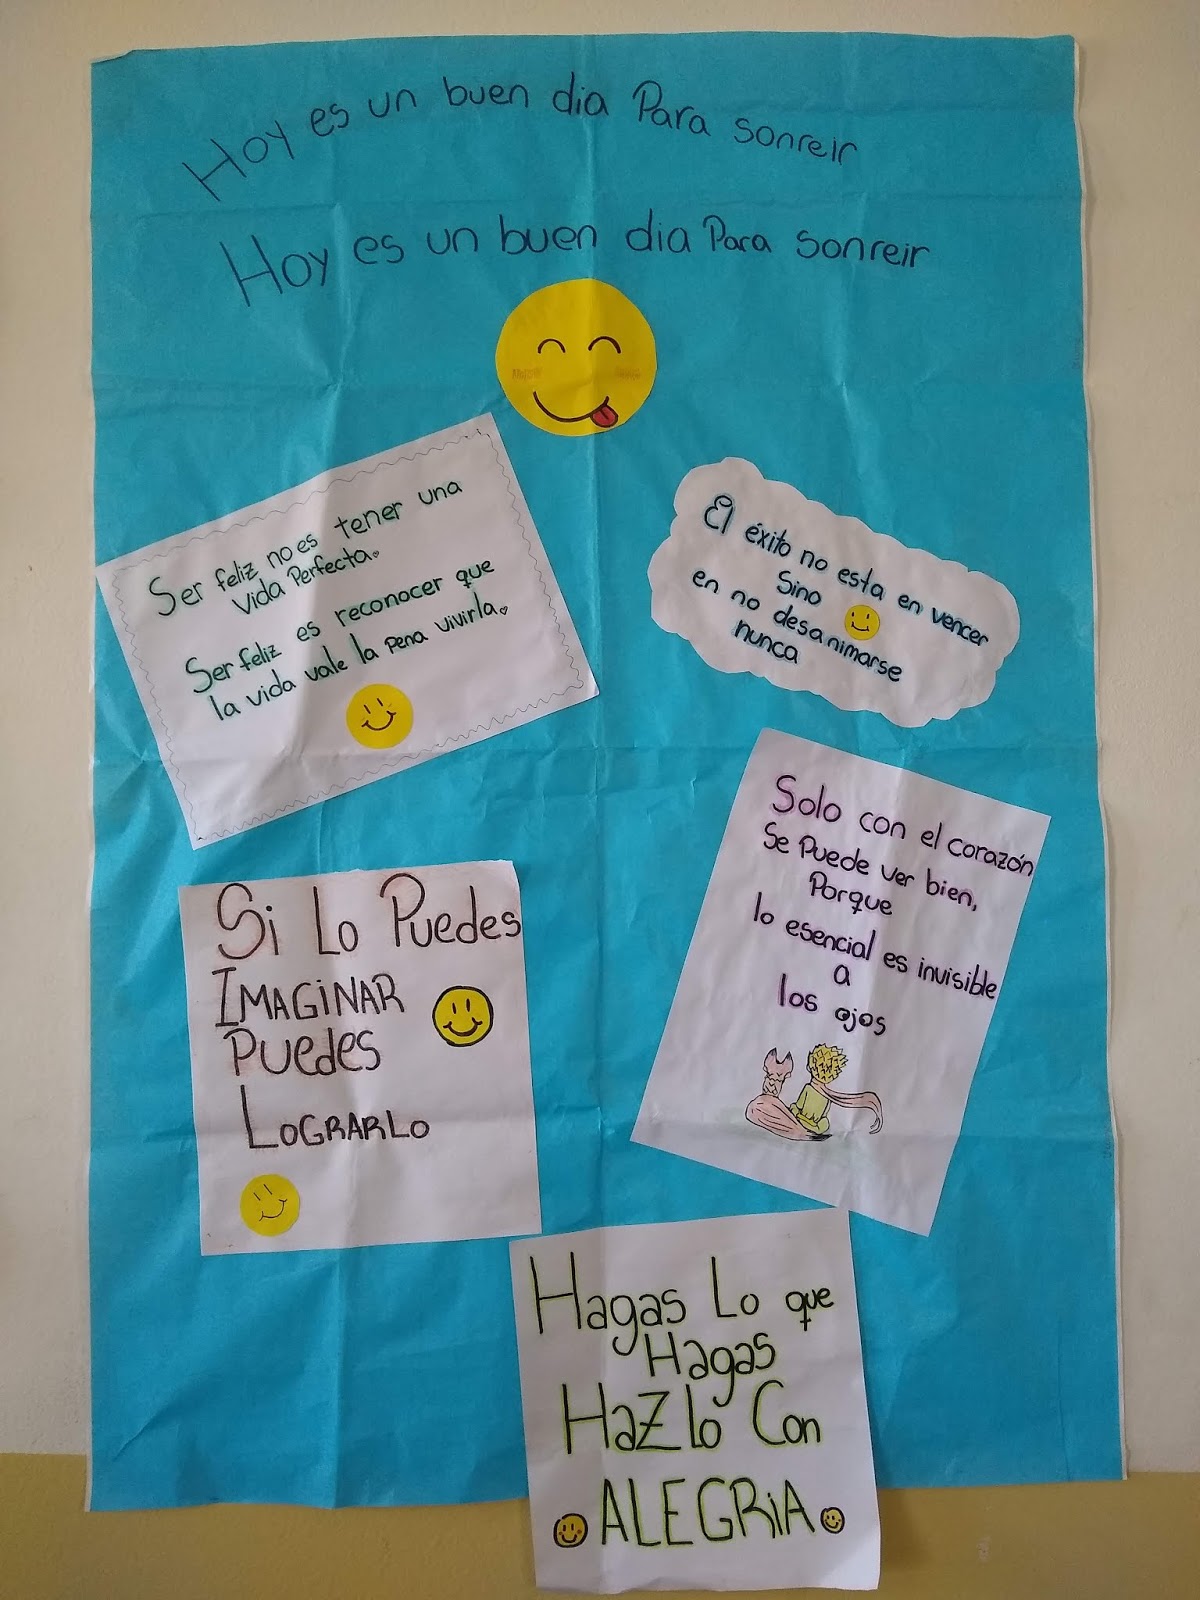 Hoy es un buen dia Para sonreir
Hoy es un buen dia Para sonreir
Ser feliz no es tener una
vida Perfecta.
Ser feliz es reconocer que
la vida vale la pena vivirla.
El éxito no esta en vencer
Sino
en no desanimarse
nunca
Si Lo Puedes
IMAGINAR
PUEdES
LOGRARLO
Solo con el corazón
Se Puede ver bien,
Porque
lo esencial es invisible
a
los ojos
Hagas Lo que
Hagas
HaZlo Con
ALEGRiA